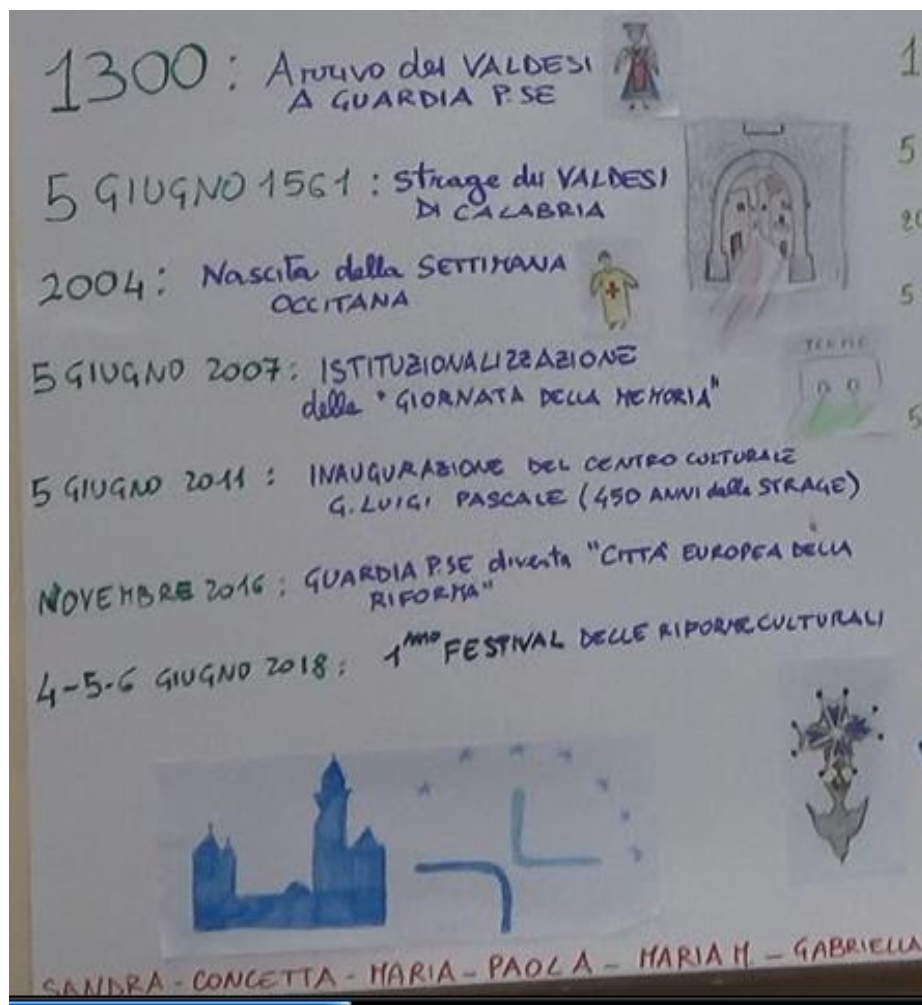 1300: Arrivo dei VALDESI
A GUARDIA P.SE
5 GIUGNO 1561: Strage dei VALDESI
DI CALABRIA
2004: Nascita della SETTIMANA
OCCITANA
5 GIUGNO 2007: ISTITUZIONALIZZAZIONE
della "GIORNATA DELLA MEMORIA"
5 GIUGNO 2011: INAUGURAZIONE DEL CENTRO CULTURALE
G. LUIGI PASCALE (450 ANNI dalla STRAGE)
NOVEMBRE 2016: GUARDIA P.SE diventa "CITTÀ EUROPEA DELLA
RIFORMA"
4-5-6 GIUGNO 2018: 1mo FESTIVAL DELLE RIFORME CULTURALI
SANDRA - CONCETTA - MARIA - PAOLA - MARIA M - GABRIELLA